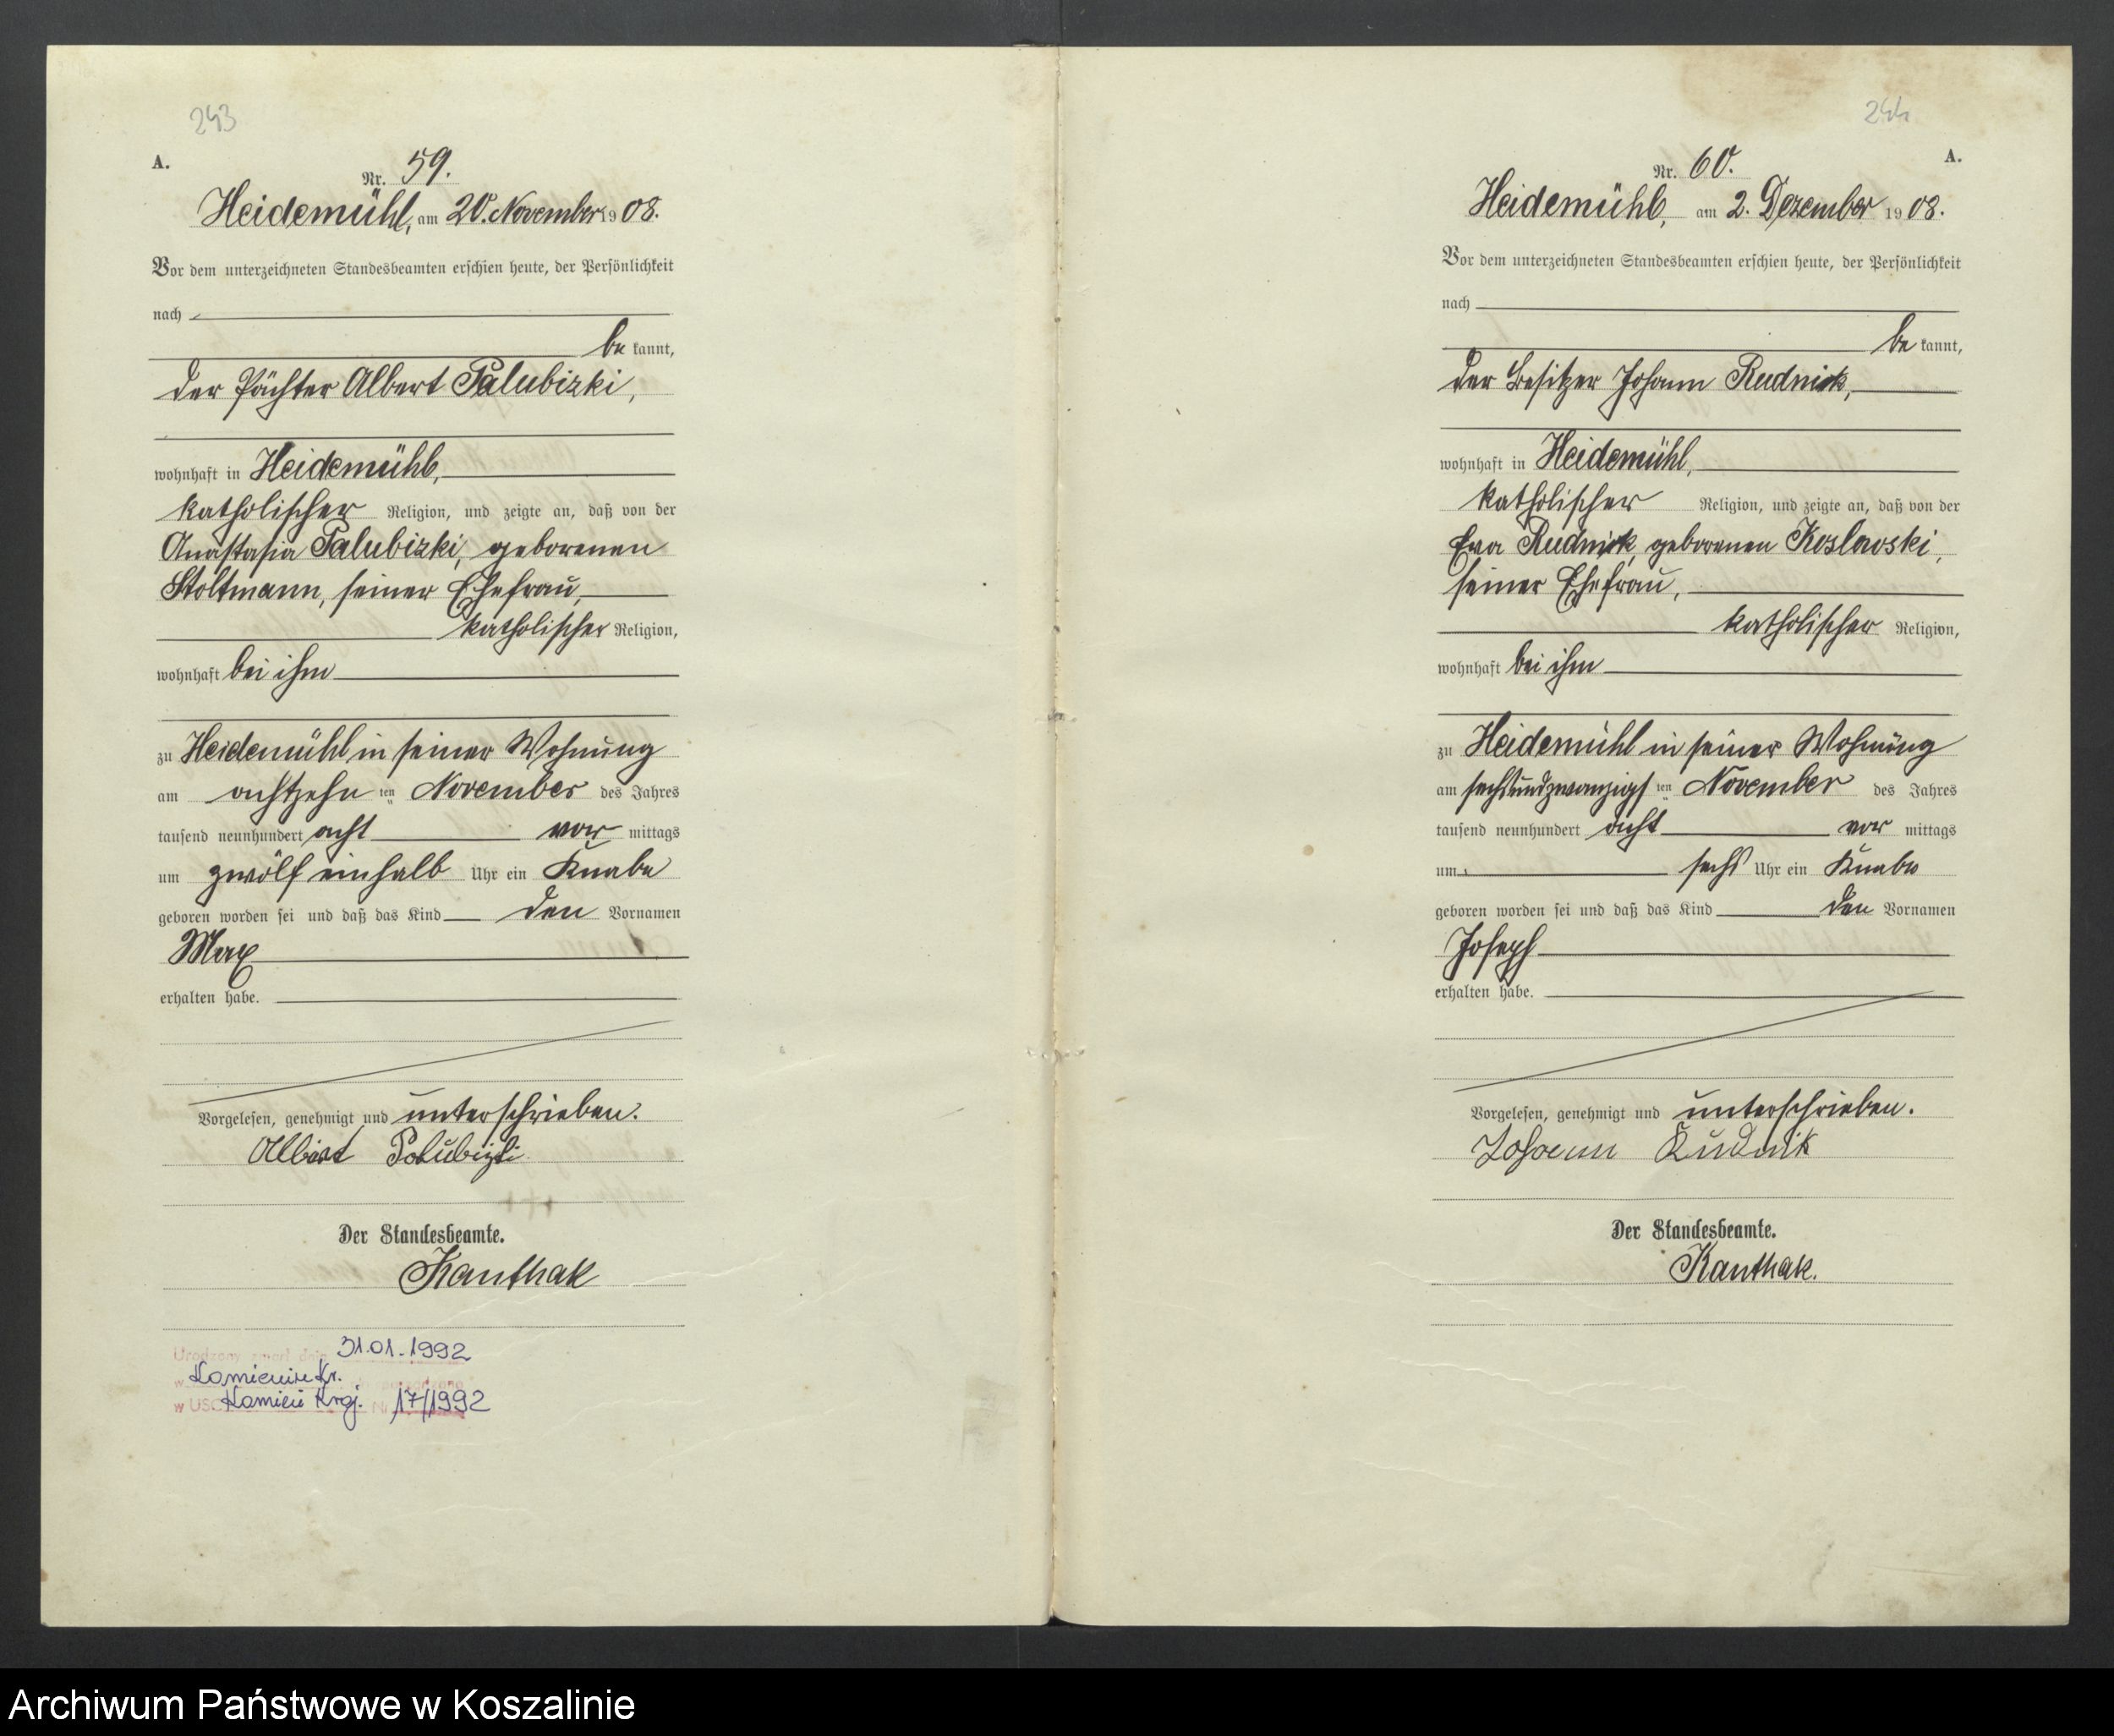 243
A.
Nr. 59.
Heidemühl, am 20. November 1908.
Vor dem unterzeichneten Standesbeamten erschien heute, der Persönlichkeit
nach
be kannt,
der Pächter Albert Palubizki,
wohnhaft in Heidemühl,
katholischer Religion, und zeigte an, daß von der
Anastasia Palubizki, geborenen
Stoltmann, seiner Ehefrau,
katholischer Religion,
wohnhaft bei ihm
zu Heidemühl in seiner Wohnung
am achtzehn ten November des Jahres
tausend neunhundert acht vor mittags
um zwölf einhalb Uhr ein Knabe
geboren worden sei und daß das Kind den Vornamen
Max
erhalten habe.
Vorgelesen, genehmigt und unterschrieben.
Albert Palubizki
Der Standesbeamte.
Kanthak
Urodzony zmarł dnia 31.01.1992
w Kamienica Kr.
w USC Kamień Kraj. Nr 17/1992
244
A.
Nr. 60.
Heidemühl, am 2. Dezember 1908.
Vor dem unterzeichneten Standesbeamten erschien heute, der Persönlichkeit
nach
be kannt,
der Besitzer Johann Rudnick,
wohnhaft in Heidemühl,
katholischer Religion, und zeigte an, daß von der
Eva Rudnick, geborenen Koslowski,
seiner Ehefrau,
katholischer Religion,
wohnhaft bei ihm
zu Heidemühl in seiner Wohnung
am sechsundzwanzigs ten November des Jahres
tausend neunhundert acht vor mittags
um sechs Uhr ein Knabe
geboren worden sei und daß das Kind den Vornamen
Joseph
erhalten habe.
Vorgelesen, genehmigt und unterschrieben.
Johann Rudnik
Der Standesbeamte.
Kanthak.
Archiwum Państwowe w Koszalinie